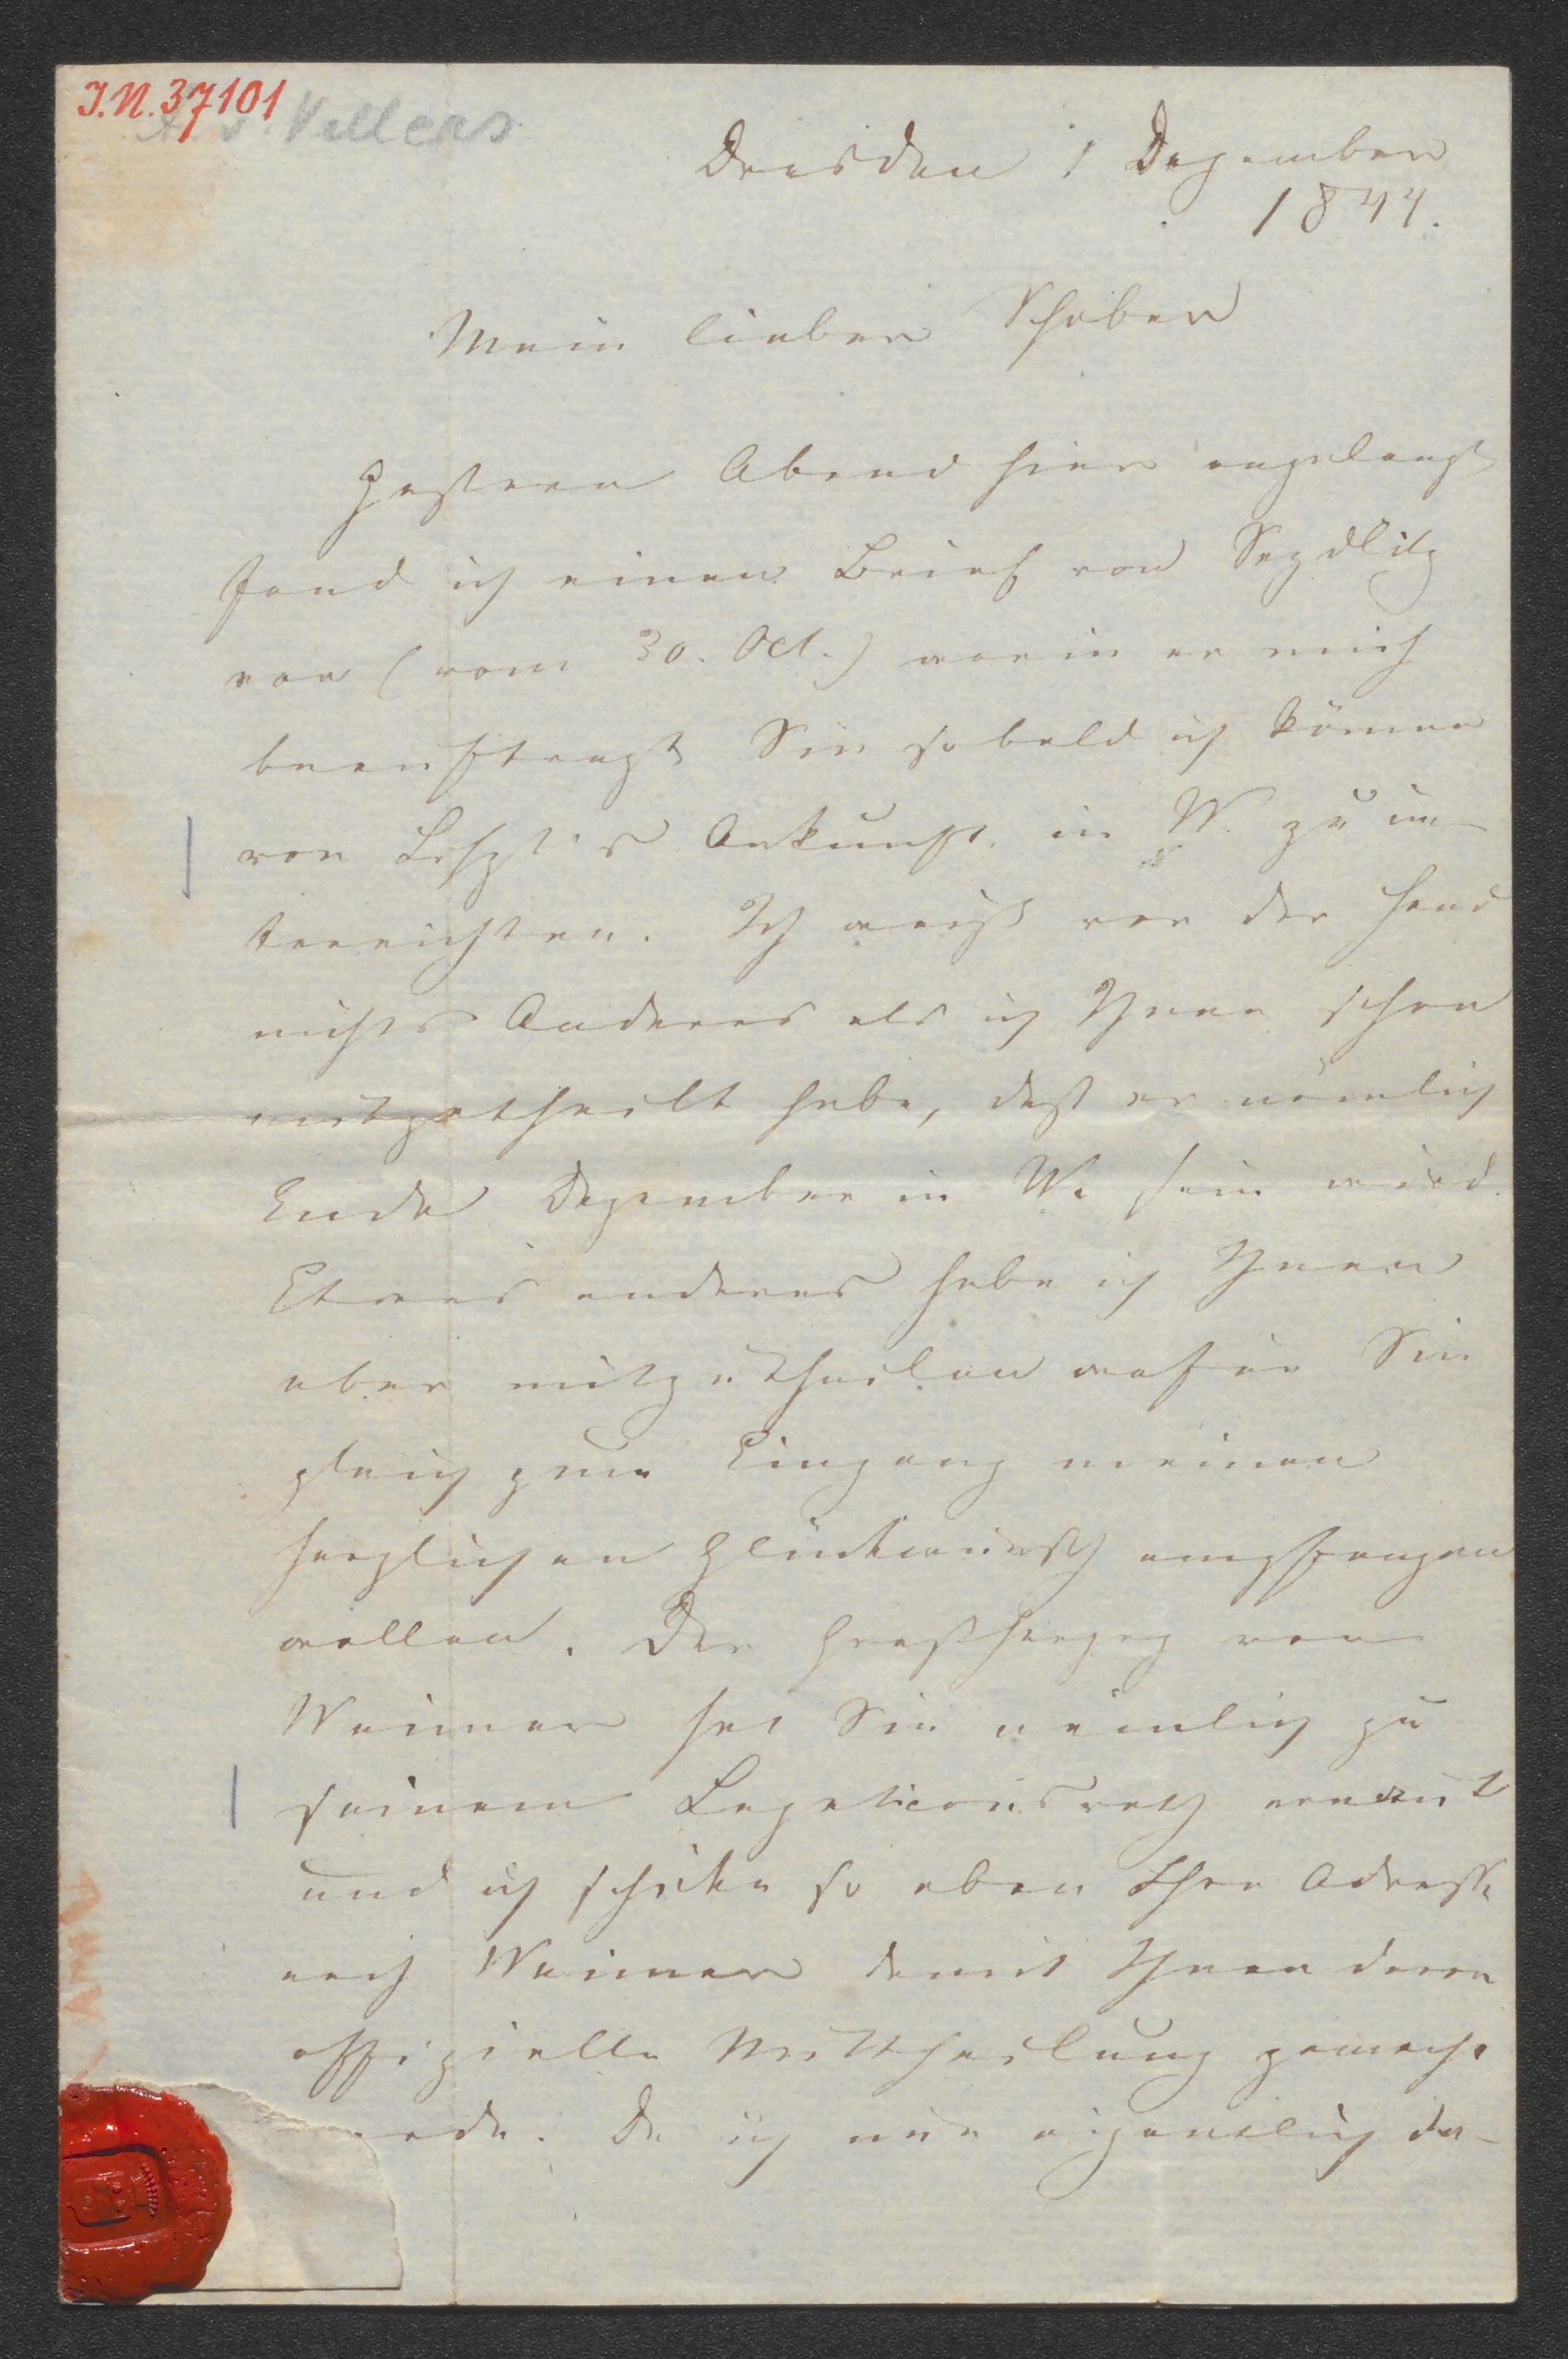 J.N. 37101
A. v. Villers
Dresden 1 Dezember
1844.
Mein lieber Schober
Gestern Abend hier angelangt
fand ich einen Brief von Seydlitz
vor (vom 30. Oct.) worin er mich
beauftragt Sie so bald ich könne
von Liszt's Ankunft in W. zu un-
terrichten. Ich weiß vor der Hand
nichts Anderes als ich Ihnen schon
mitgetheilt habe, daß er nämlich
Ende Dezember in W. sein wird.
Etwas anderes habe ich Ihnen
aber mitzutheilen wofür Sie
gleich zum Eingang meinen
herzlichen Glückwunsch empfangen
wollen. Der Großherzog von
Weimar hat Sie nämlich zu
seinem Legationsrath ernannt
und ich schicke so eben Ihre Adresse
nach Weimar damit Ihnen davon
offizielle Mittheilung gemacht
werde. Da ich nun eigentlich der-